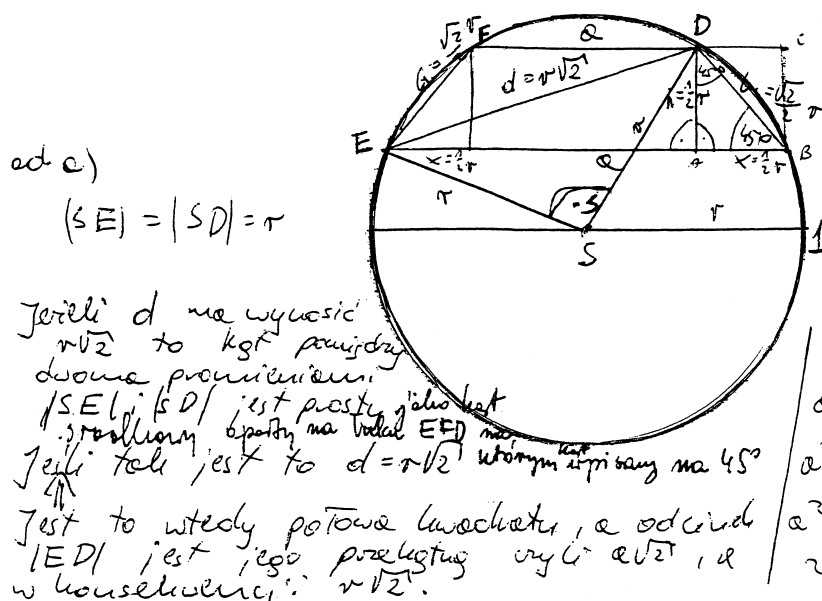 E
a
D
C
d = r√2
h = 1/2 r
45°
b = √2/2 r
45°
r
E
x = 1/2 r
a
A
x = 1/2 r
B
ad c)
r
|SE| = |SD| = r
S
r
1
Jeżeli d ma wynosić
r√2 to kąt pomiędzy
dwoma promieniami
|SE| i |SD| jest prosty jako kąt
środkowy oparty na łuku EFD na
Jeśli tak jest to d = r√2 którym kąt wpisany ma 45°
Jest to wtedy połowa kwadratu, a odcinek
|ED| jest jego przekątną czyli a√2, a
w konsekwencji: r√2.